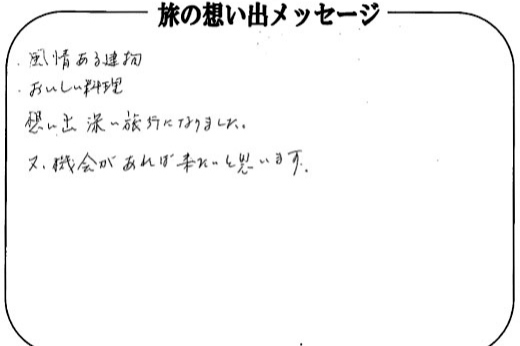 旅の想い出メッセージ
・風情ある建物
・おいしい料理
想い出深い旅行になりました。
又、機会があれば来たいと思います。